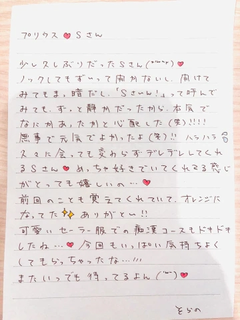 プリクス♥Sさん
少し久しぶりだったSさん(*´ω`*)♥
ノックしてもずーっと開かないし、開けて
みてもまっ暗だし、「Sさぁん!」って呼んで
みても、ずっと静かだったから、本気で
なにかあったかと心配した(笑)!!!!
無事で元気でよかったよ(笑)!!ハラハラ
久々に会っても変わらずデレデレしてくれ
るSさん♥めっちゃ好きでいてくれてる感じ
がとっても嬉しいの…♥
前回のことも覚えてくれていて、オレンジに
なってた✨ありがと〜!!
可愛いセーラー服での痴漢コースもドキドキ
したね…♥今回もいっぱい気持ちよく
してもらっちゃったな…!!!
またいつでも待ってるよん(*´ω`*)♥